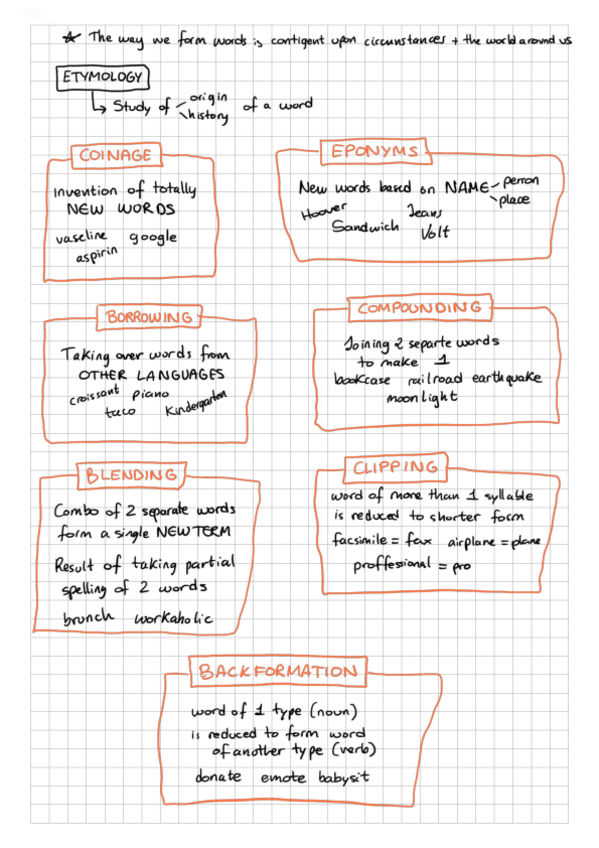 * The way we form words is contigent upon circumstances + the world around us
ETYMOLOGY
↳ Study of origin
history of a word
COINAGE
Invention of totally
NEW WORDS
vaseline google
aspirin
EPONYMS
New words based on NAME person
place
Hoover Jeans
Sandwich Volt
BORROWING
Taking over words from
OTHER LANGUAGES
croissant piano
taco Kindergarten
COMPOUNDING
Joining 2 separte words
to make 1
bookcase railroad earthquake
moonlight
BLENDING
Combo of 2 separate words
form a single NEW TERM
Result of taking partial
spelling of 2 words
brunch workaholic
CLIPPING
word of more than 1 syllable
is reduced to shorter form
facsimile = fax airplane = plane
proffesional = pro
BACKFORMATION
word of 1 type (noun)
is reduced to form word
of another type (verb)
donate emote babysit